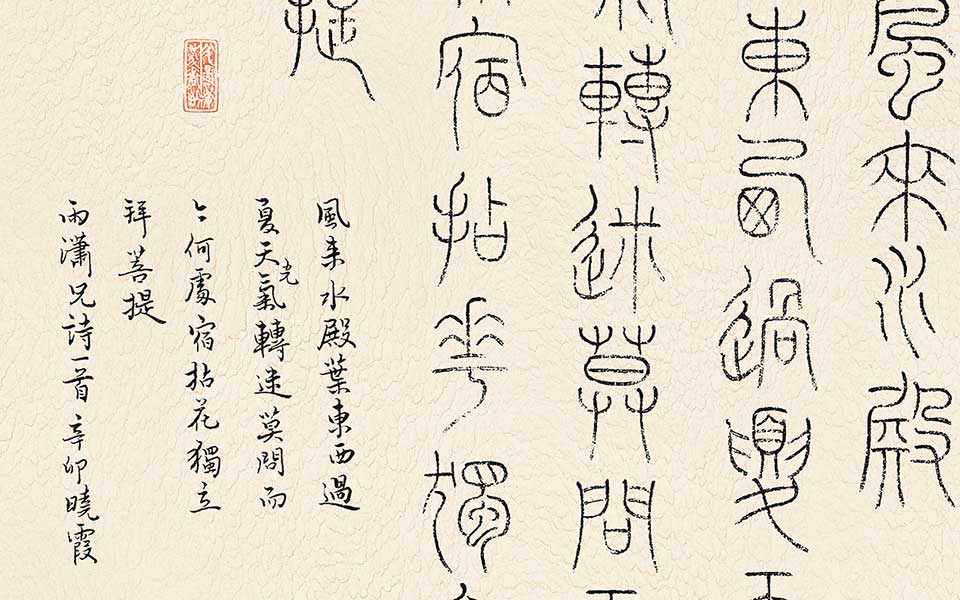 風来水殿
東西過夏
轉迷莫問
宿拈花獨
提
風来水殿葉東西過
夏天光氣轉迷莫問而
今何處宿拈花獨立
拜菩提
雨瀟兄詩一首辛卯曉霞